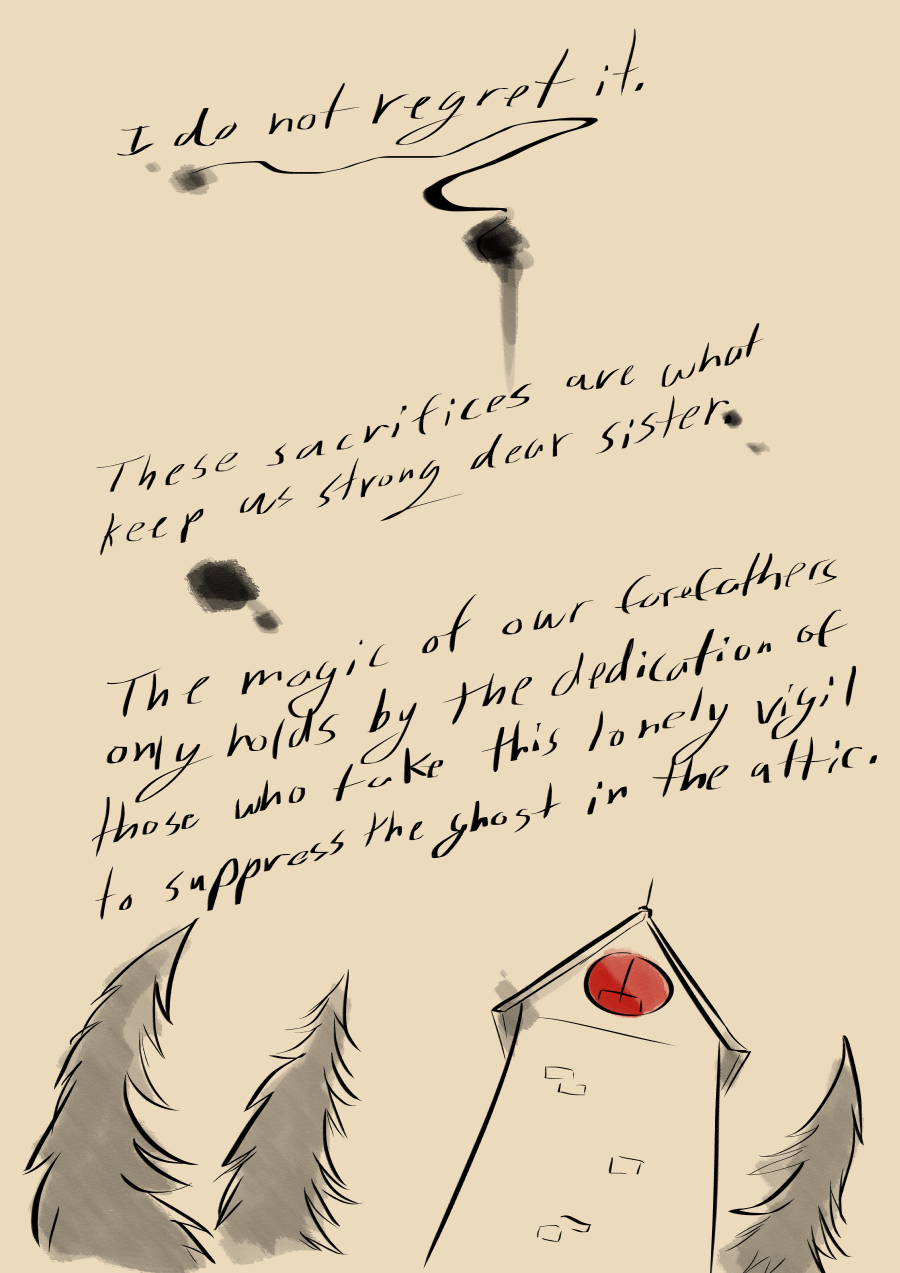 I do not regret it.
These sacrifices are what
keep us strong dear sister.
The magic of our forefathers
only holds by the dedication of
those who take this lonely vigil
to suppress the ghost in the attic.